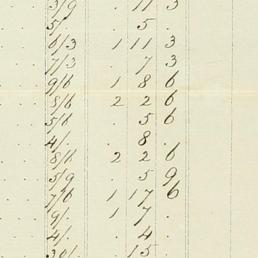 3/9 . 11 3
5/. . 5 .
6/3 1 11 3
7/3 . 7 3
9/6 1 8 6
8/6 2 2 6
5/6 . 5 6
4/. . 8 .
8/6 2 2 6
5/9 . 5 9
7/6 1 17 6
9/. 1 7 .
4/. . 4 .
30/. . 15 .